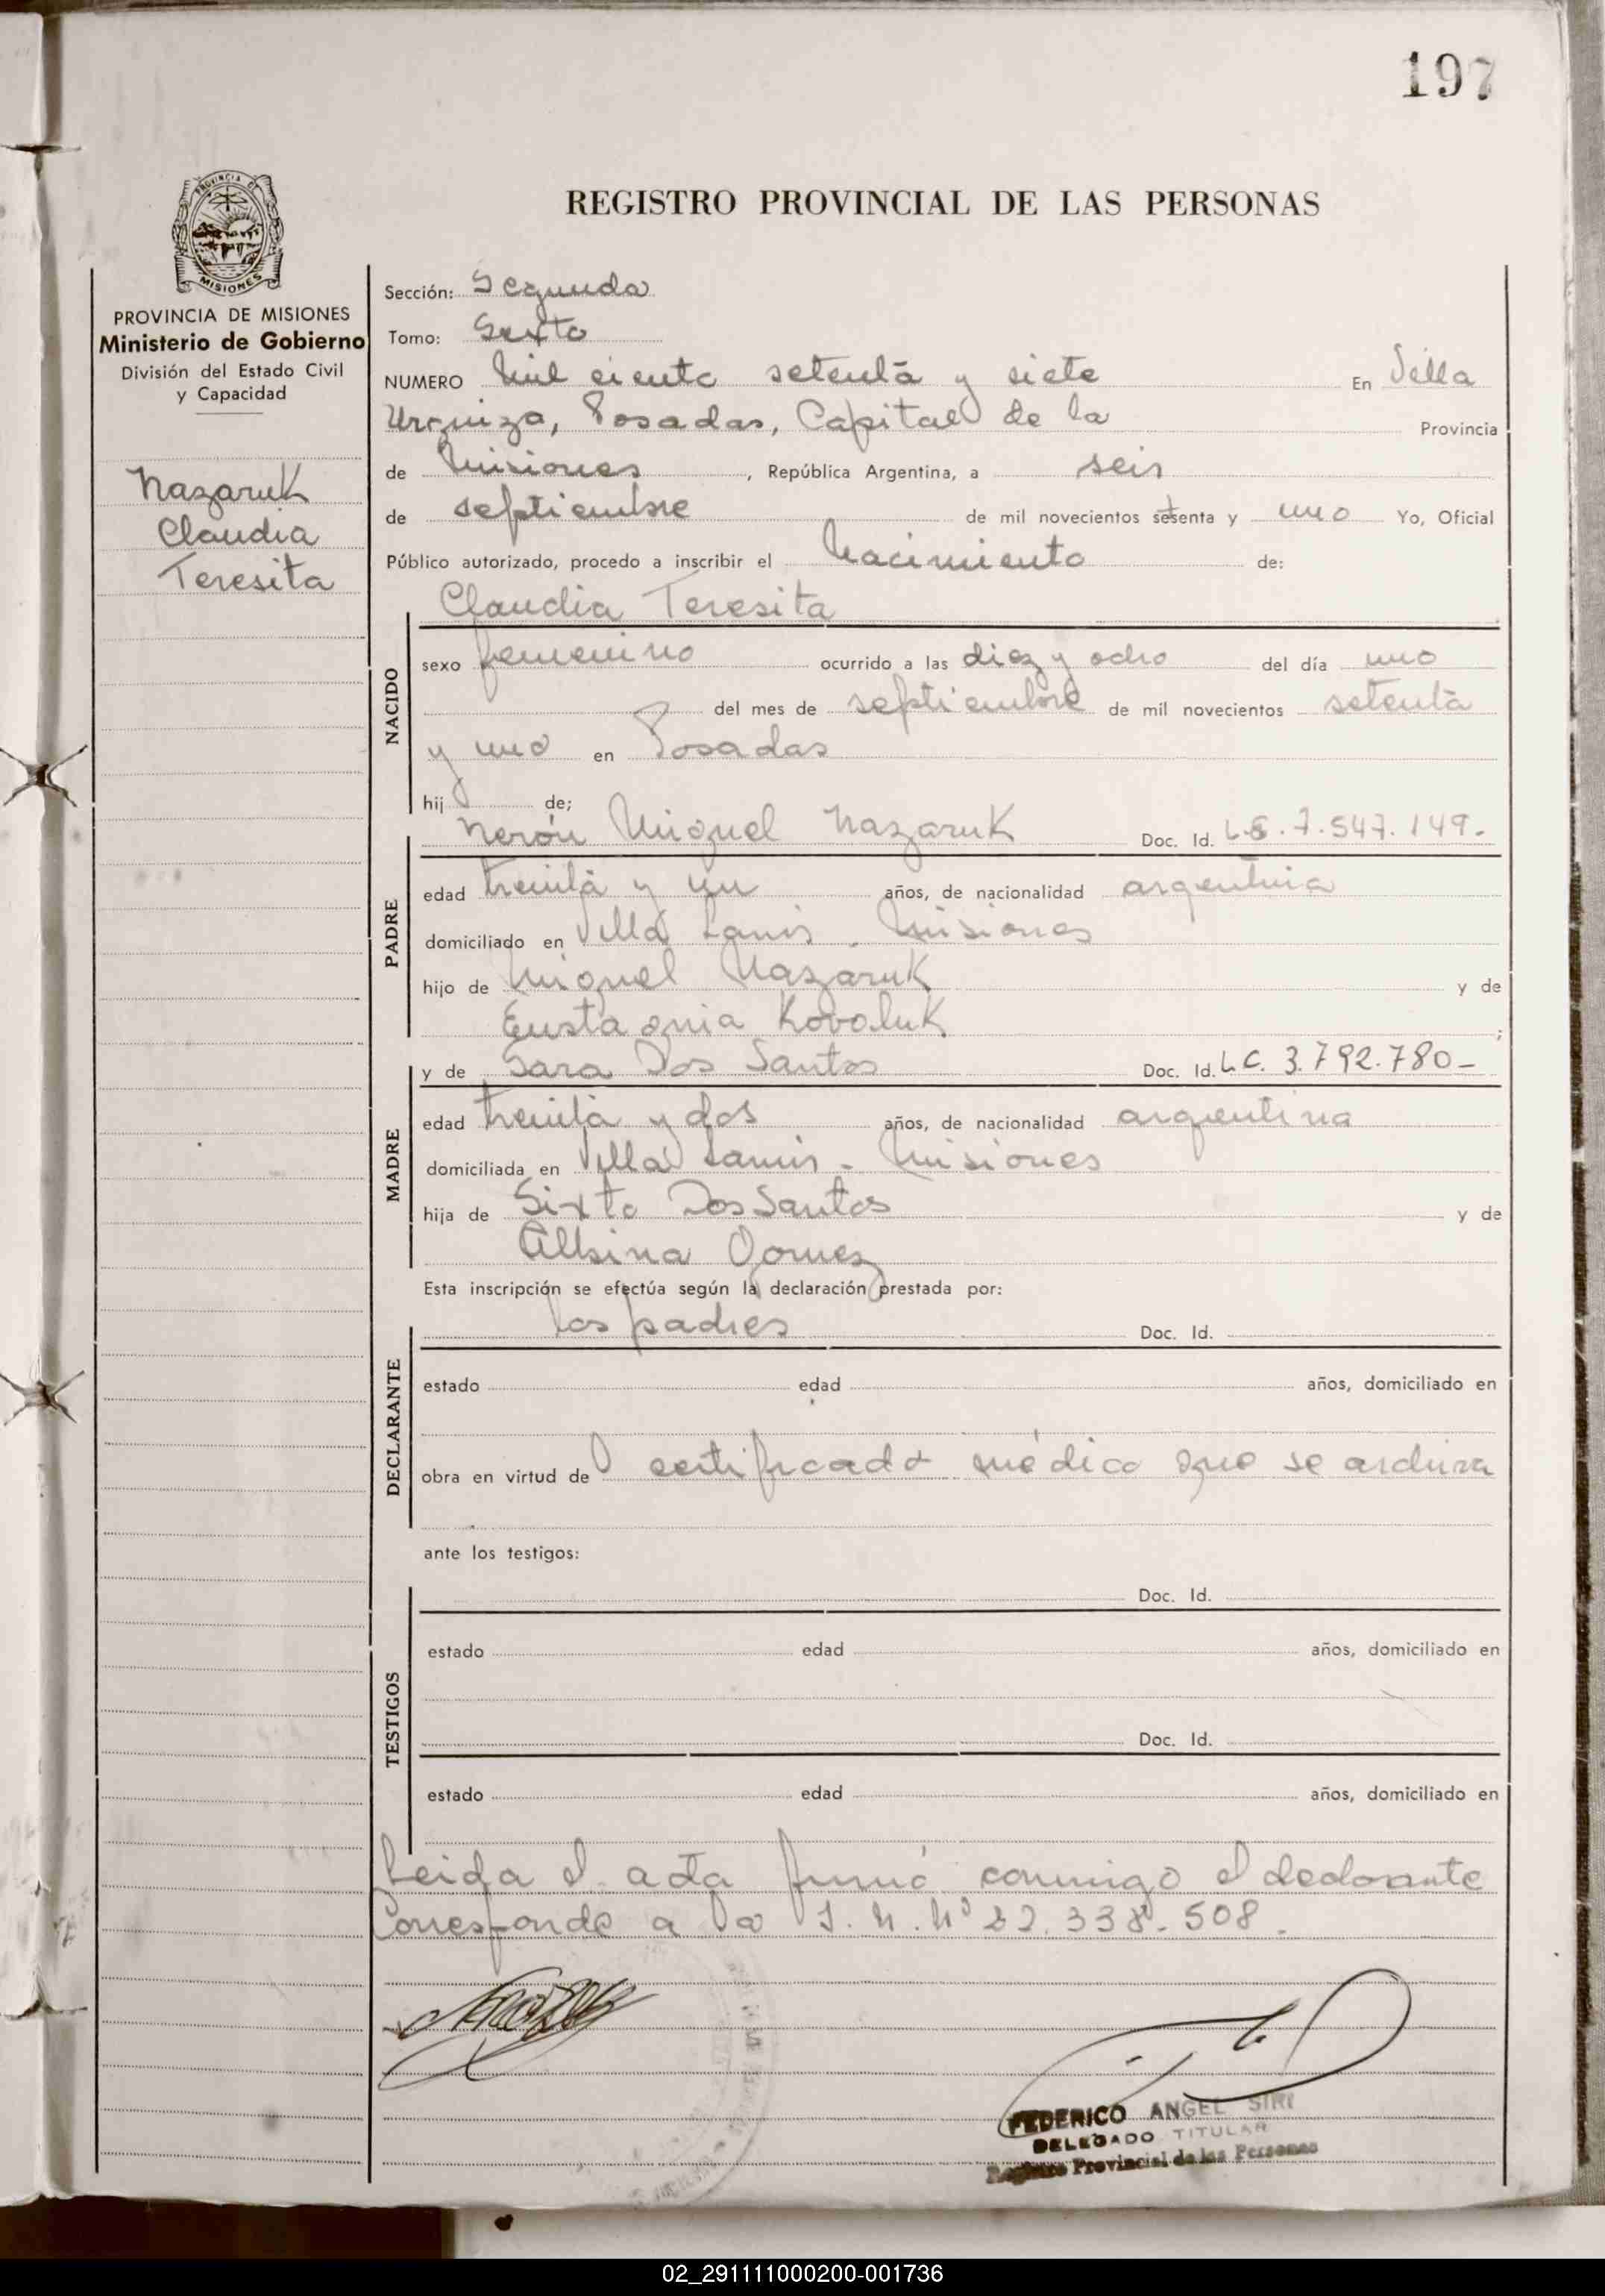 197
REGISTRO PROVINCIAL DE LAS PERSONAS
PROVINCIA DE MISIONES
PROVINCIA DE MISIONES
Ministerio de Gobierno
División del Estado Civil
y Capacidad
Nazaruk
Claudia
Teresita
Sección: Segunda
Tomo: Sexto
NUMERO Mil ciento setenta y siete En Villa
Urquiza, Posadas, Capital de la Provincia
de Misiones, República Argentina, a seis
de septiembre de mil novecientos setenta y uno Yo, Oficial
Público autorizado, procedo a inscribir el Nacimiento de:
Claudia Teresita
NACIDO
sexo femenino ocurrido a las diez y ocho del día uno
del mes de septiembre de mil novecientos setenta
y uno en Posadas
hij de;
Nerón Miguel Nazaruk Doc. Id. L.E. 7.547.149.
PADRE
edad treinta y un años, de nacionalidad argentina
domiciliado en Villa Lanus - Misiones
hijo de Miguel Nazaruk y de
Eustaquia Kovaluk;
y de Sara Dos Santos Doc. Id. L C. 3.792.780-
MADRE
edad treinta y dos años, de nacionalidad argentina
domiciliada en Villa Lanus - Misiones
hija de Sixto Dos Santos y de
Albina Gomez
Esta inscripción se efectúa según la declaración prestada por:
los padres Doc. Id.
DECLARANTE
estado edad años, domiciliado en
obra en virtud de l certificado médico que se archiva
ante los testigos:
Doc. Id.
TESTIGOS
estado edad años, domiciliado en
Doc. Id.
estado edad años, domiciliado en
Leida el acta firmó conmigo el declarante
Corresponde a la I. N. Nº 22.338.508.
FEDERICO ANGEL SIRI
DELEGADO TITULAR
Registro Provincial de las Personas
02_291111000200-001736